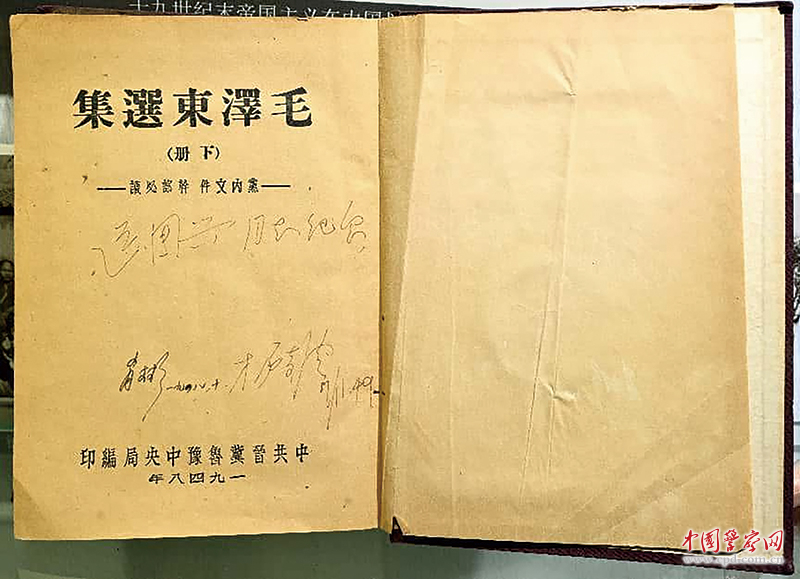 十九世纪末帝国主义在中国
毛澤東選集
（下册）
——黨內文件 幹部必讀——
一九四八、十、
中共晉冀魯豫中央局編印
一九四八年
中国警察网
www.cpd.com.cn